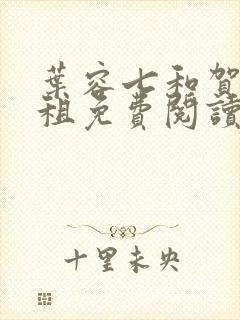 葉容七和賀
租免費閱讀
十里未央